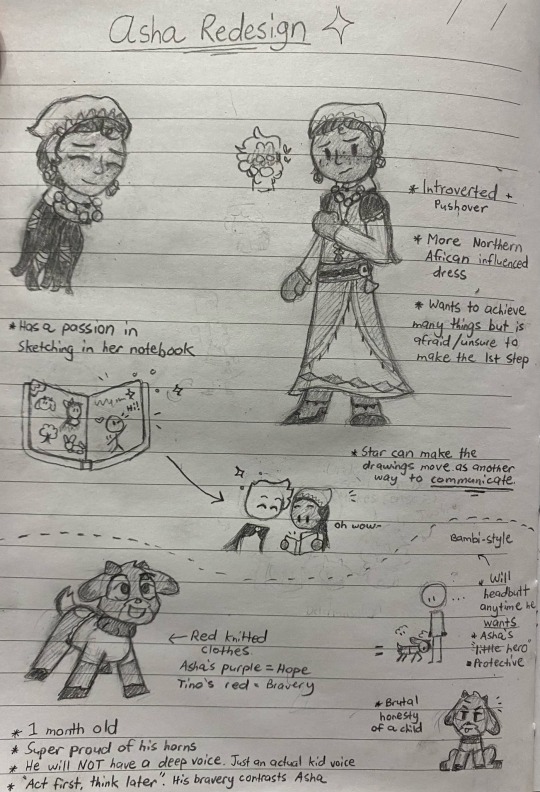 Asha Redesign
* Introverted +
Pushover
* More Northern
African influenced
dress
* Wants to achieve
many things but is
afraid/unsure to
make the 1st step
* Has a passion in
sketching in her notebook
Hi!
* Star can make the
drawings move as another
way to communicate.
oh wow~
Bambi-style
* Will
headbutt
anytime he
wants
* Asha's
"little hero"
* Protective
...
=
← Red knitted
clothes
Asha's purple = Hope
Tino's red = Bravery
* Brutal
honesty
of a child
* 1 month old
* Super proud of his horns
* He will NOT have a deep voice. Just an actual kid voice
* "Act first, think later". His bravery contrasts Asha